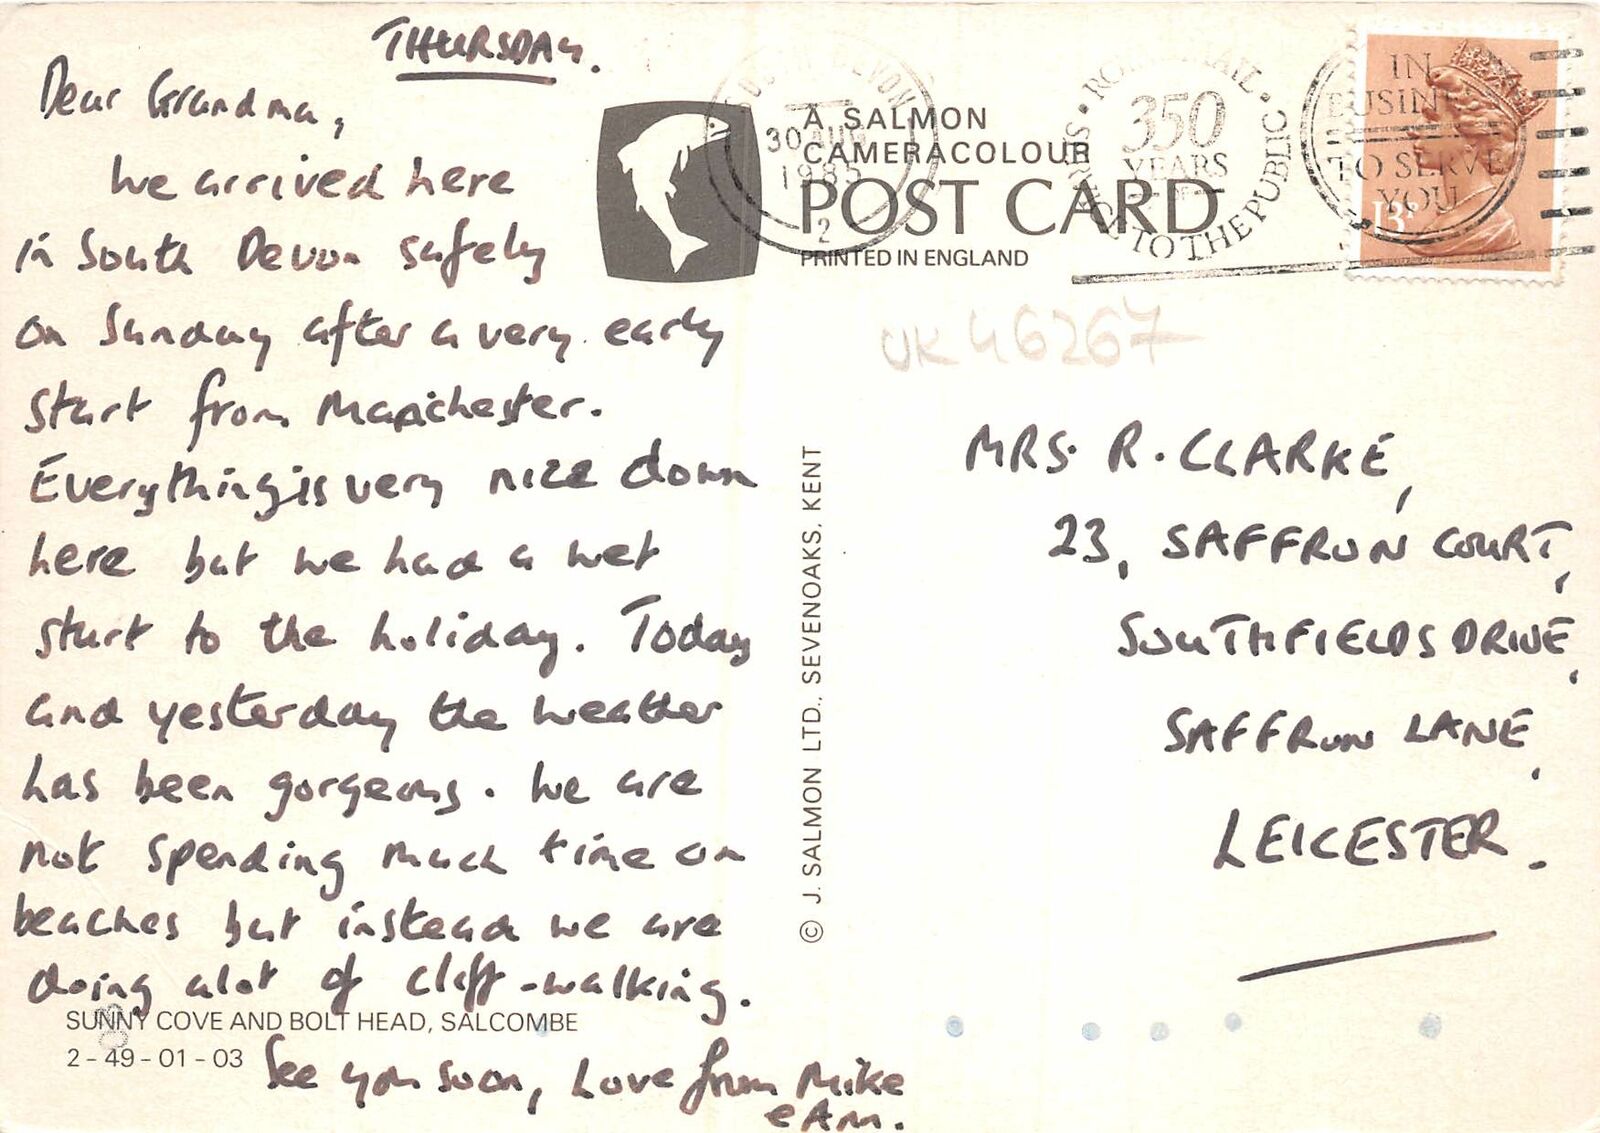 THURSDAY.
Dear Grandma,
We arrived here
in South Devon safely
on Sunday after a very early
start from Manchester.
Everything is very nice down
here but we had a wet
start to the holiday. Today
and yesterday the weather
has been gorgeous. We are
not spending much time on
beaches but instead we are
doing alot of cliff-walking.
SUNNY COVE AND BOLT HEAD, SALCOMBE
2-49-01-03
See you soon, Love from Mike
A SALMON
CAMERACOLOUR
POST CARD
PRINTED IN ENGLAND
SOUTH DEVON
30 AUG
1985
2
ROYAL MAIL
350
YEARS
OF
SERVICE TO THE PUBLIC
IN
BUSINESS
TO SERVE
YOU
13P
UK46267
© J. SALMON LTD., SEVENOAKS, KENT
MRS. R. CLARKE,
23, SAFFRON COURT,
SOUTHFIELDS DRIVE,
SAFFRON LANE,
LEICESTER.